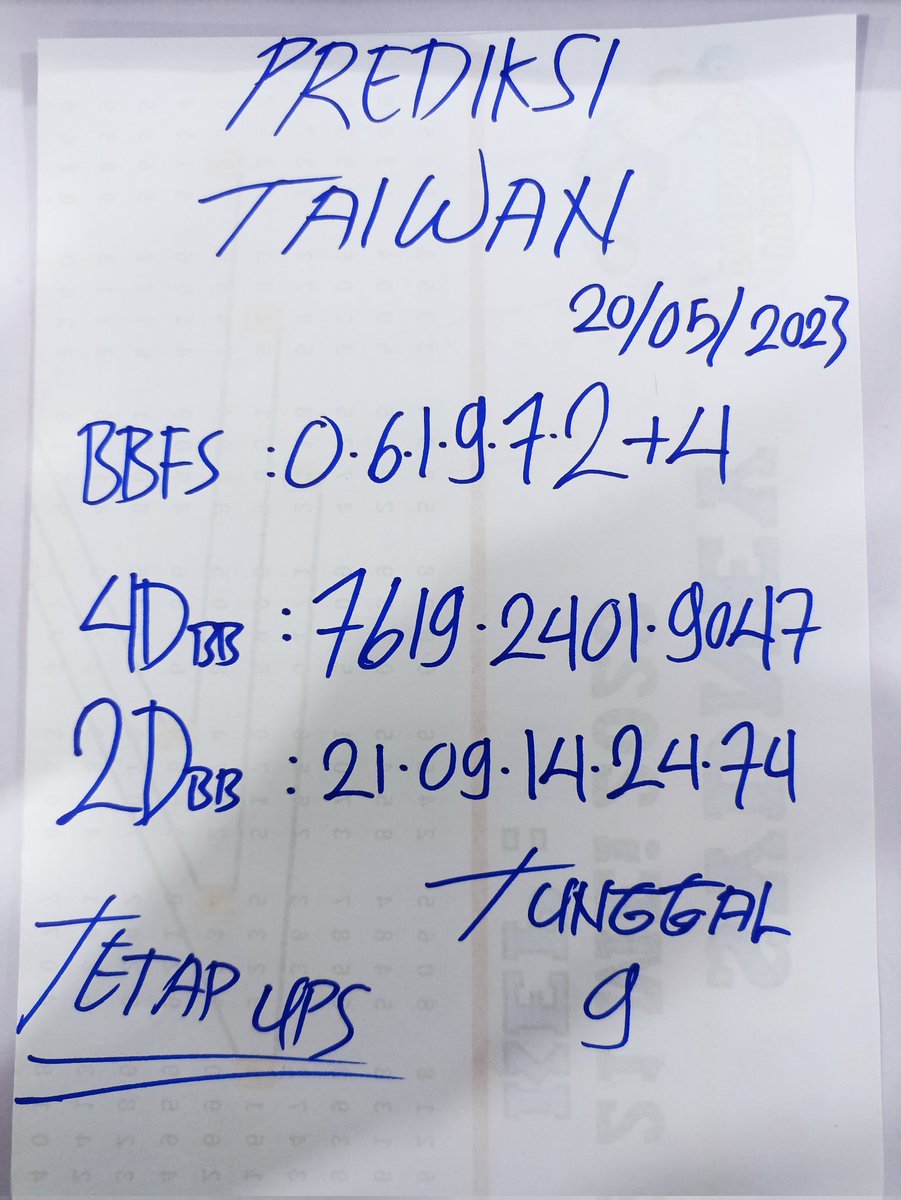 PREDIKSI
TAIWAN
20/05/2023
BBFS : 0.6.1.9.7.2+4
4D BB : 7619.2401.9047
2D BB : 21.09.14.24.74
TUNGGAL
9
TETAP UPS